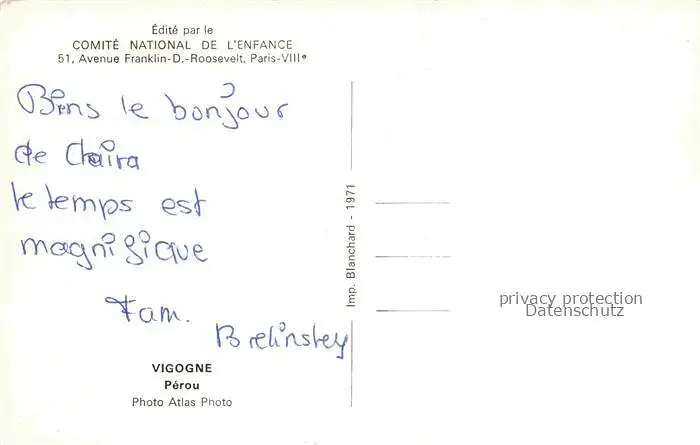 Édité par le
COMITÉ NATIONAL DE L'ENFANCE
51, Avenue Franklin-D.-Roosevelt, Paris-VIIIe
Bins le bonjour
de Claira
le temps est
magnifique
Fam.
Brelinskey
VIGOGNE
Pérou
Photo Atlas Photo
Imp. Blanchard - 1971
privacy protection
Datenschutz